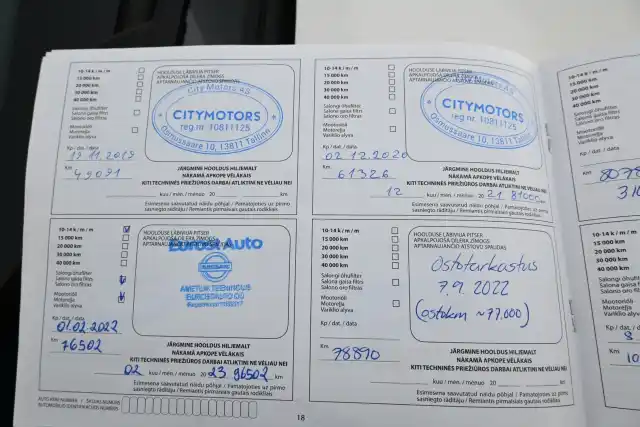 10-14 k / m / m
15 000 km
20 000 km
30 000 km
40 000 km
Salongi õhufilter
Salona gaisa filtrs
Salono oro filtras
Mootoriõli
Motoreļļa
Variklio alyva
HOOLDUSE LÄBIVIIJA PITSER
APKALPOJOŠĀ DĪLERA ZĪMOGS
APTARNAUJANČIO ATSTOVO SPAUDAS
City Motors AS
CITYMOTORS
reg nr. 10811125
Osmussaare 10, 13811 Tallinn
Kp / dat. / data
19.11.2019
Km
49091
JÄRGMINE HOOLDUS HILJEMALT
NĀKAMĀ APKOPE VĒLĀKAIS
KITI TECHNINĖS PRIEŽIŪROS DARBAI ATLIKTINI NE VĖLIAU NEI
kuu / mēn. / mėnuo 20 km
Esmesena saavutatud näidu põhjal / Pamatojoties uz pirmo
sasniegto rādītāju / Remiantis pirmaisiais gautais rodikliais
10-14 k / m / m
15 000 km
20 000 km
30 000 km
40 000 km
Salongi õhufilter
Salona gaisa filtrs
Salono oro filtras
Mootoriõli
Motoreļļa
Variklio alyva
HOOLDUSE LÄBIVIIJA PITSER
APKALPOJOŠĀ DĪLERA ZĪMOGS
City Motors AS
CITYMOTORS
reg nr. 10811125
Osmussaare 10, 13811 Tallinn
Kp / dat. / data
02.12.2020
Km
61326
JÄRGMINE HOOLDUS HILJEMALT
NĀKAMĀ APKOPE VĒLĀKAIS
KITI TECHNINĖS PRIEŽIŪROS DARBAI ATLIKTINI NE VĖLIAU NEI
12 kuu / mēn. / mėnuo 20 21 km
Esmesena saavutatud näidu põhjal / Pamatojoties uz pirmo
sasniegto rādītāju / Remiantis pirmaisiais gautais rodikliais
10-14 k / m / m
15 000 km
20 000 km
30 000 km
40 000 km
Salongi õhufilter
Salona gaisa filtrs
Salono oro filtras
Mootoriõli
Motoreļļa
Variklio alyva
HOOLDUSE LÄBIVIIJA PITSER
APKALPOJOŠĀ DĪLERA ZĪMOGS
Auto
AMETLIK TEENINDUS
Kp / dat. / data
01.02.2022
Km
76502
JÄRGMINE HOOLDUS HILJEMALT
NĀKAMĀ APKOPE VĒLĀKAIS
KITI TECHNINĖS PRIEŽIŪROS DARBAI ATLIKTINI NE VĖLIAU NEI
02 kuu / mēn. / mėnuo 20 23 96502 km
Esmesena saavutatud näidu põhjal / Pamatojoties uz pirmo
sasniegto rādītāju / Remiantis pirmaisiais gautais rodikliais
10-14 k / m / m
15 000 km
20 000 km
30 000 km
40 000 km
Salongi õhufilter
Salona gaisa filtrs
Salono oro filtras
Mootoriõli
Motoreļļa
Variklio alyva
HOOLDUSE LÄBIVIIJA PITSER
APKALPOJOŠĀ DĪLERA ZĪMOGS
APTARNAUJANČIO ATSTOVO SPAUDAS
Ostotarkastus
7.9.2022
(ostokm ~77.000)
Kp / dat. / data
Km
78890
JÄRGMINE HOOLDUS HILJEMALT
NĀKAMĀ APKOPE VĒLĀKAIS
KITI TECHNINĖS PRIEŽIŪROS DARBAI ATLIKTINI NE VĖLIAU NEI
kuu / mēn. / mėnuo 20 km
Esmesena saavutatud näidu põhjal / Pamatojoties uz pirmo
sasniegto rādītāju / Remiantis pirmaisiais gautais rodikliais
18
10-14 k / m / m
15 000 km
20 000 km
30 000 km
40 000 km
Kp / dat. / data
Km
10-14 k / m / m
15 000 km
20 000 km
30 000 km
40 000 km
Salongi õhufilter
Salona gaisa filtrs
Salono oro filtras
Mootoriõli
Motoreļļa
Variklio alyva
Kp / dat. / data
Km